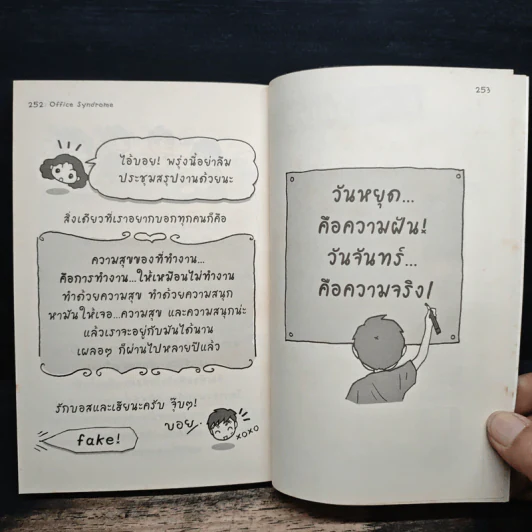 252: Office Syndrome
ไอ้บอย! พรุ่งนี้อย่าลืม
ประชุมสรุปงานด้วยนะ
สิ่งเดียวที่เราอยากบอกทุกคนก็คือ
ความสุขของที่ทำงาน...
คือการทำงาน...ให้เหมือนไม่ทำงาน
ทำด้วยความสุข ทำด้วยความสนุก
หามันให้เจอ...ความสุข และความสนุกน่ะ
แล้วเราจะอยู่กับมันได้นาน
เผลอๆ ก็ผ่านไปหลายปีแล้ว
รักบอสและเฮียนะครับ จุ๊บๆ!
บอย
xoxo
fake!
253
วันหยุด...
คือความฝัน!
วันจันทร์...
คือความจริง!